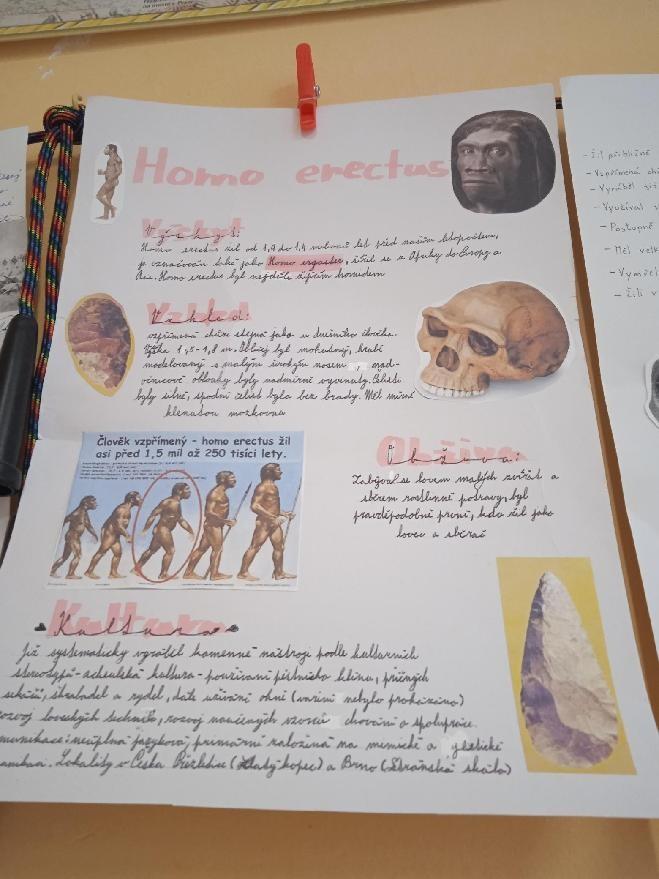 Homo erectus
Výskyt:
Homo erectus žil od 1,9 do 1,4 milionů let před naším letopočtem,
je označován také jako Homo ergaster, šířil se z Afriky do Evropy a
Asie. Homo erectus byl nejdéle žijícím homidem
Vzhled:
vzpřímená chůze stejná jako u dnešního člověka.
Výška 1,5-1,8 m. Obličej byl mohutný, hrubě
modelovaný s malým širokým nosem nad-
očnicové oblouky byly nadmírně vyvinuty. Čelisti
byly silné, spodní čelist byla bez brady. Měl mírně
klenutou mozkovnu
Člověk vzpřímený - homo erectus žil
asi před 1,5 mil až 250 tisíci lety.
Obživa:
Zabýval se lovem malých zvířat a
sběrem rostlinné potravy, byl
pravděpodobně první, kdo žil jako
lovec a sběrač
Kultura
Již systematicky vyráběl kamenné nástroje podle kulturních
stereotypů-acheulská kultura - používaní pěstního klínu, příčných
sekáčů, škrabadel a rydel, dále užívání ohně (vaření nebylo prokázáno)
rozvoj loveckých technik, rozvoj naučených vzorců chování a spolupráce
munikace: neúplná jazyková, primární založená na mimické a
Lokality v Česka Přezletice (Zlatý kopec) a Brno (Stránská skála)
- Žil přibližně
- Vzpřímená
- Vyráběl
- Využíval
- Postupně
- Měl velk
- Vymřel
- Žili v